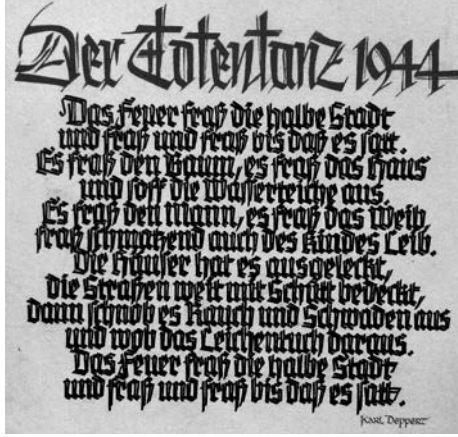 Der Totentanz 1944
Das Feuer fraß die halbe Stadt
und fraß und fraß bis daß es satt.
Es fraß den Baum, es fraß das Haus
und soff die Wasserteiche aus.
Es fraß den Mann, es fraß das Weib
fraß schmatzend auch des Kindes Leib.
Die Häuser hat es ausgeleckt,
die Straßen weit mit Schutt bedeckt,
dann schnob es Rauch und Schwaden aus
und wob das Leichentuch daraus.
Das Feuer fraß die halbe Stadt
und fraß und fraß bis daß es satt.
Karl Deppert